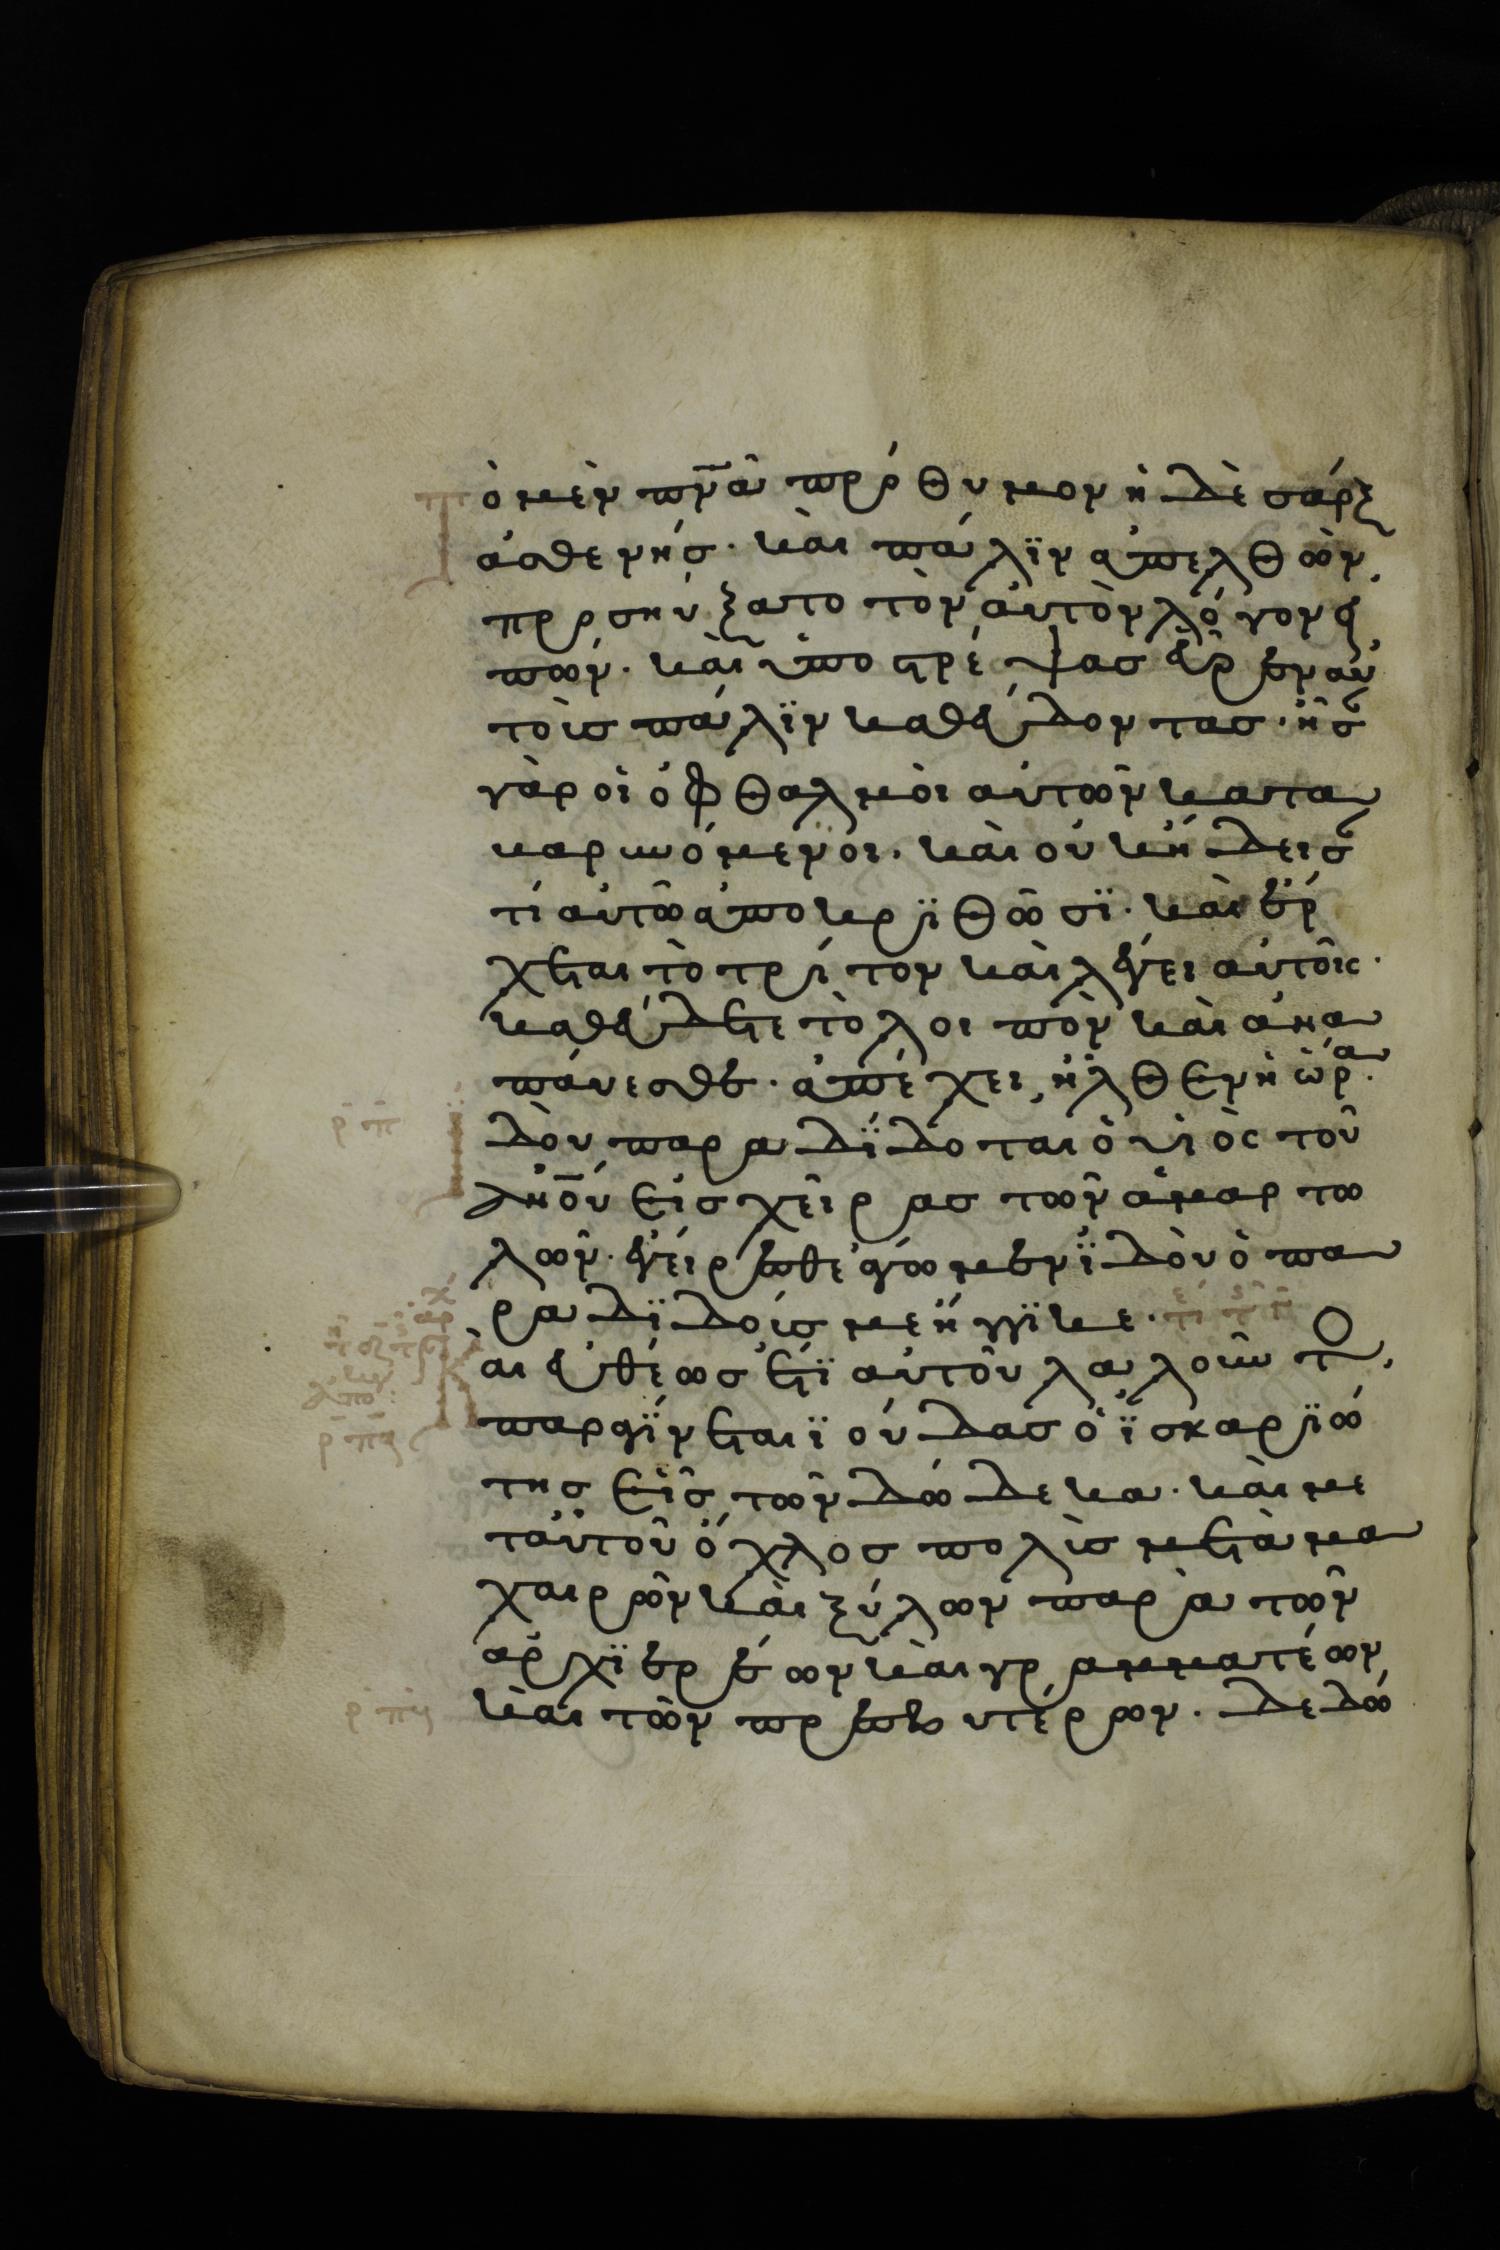 Τὸ μὲν πν̅ᾶ πρόθυμον ἡ δὲ σάρξ
ἀσθενής. καὶ πάλϊν ἀπελθὼν,
προσηύξατο τὸν αὐτὸν λόγον εἰ
πών. καὶ ὑποστρέψας εὗρεν αὐ
τοὶς πάλϊν καθεύδοντας. ἦσ
γὰρ οἱ ὀφθαλμοὶ αὐτῶν κατα
καρϊνόμενοι. καὶ οὐκ ἤδεισ
τί αὐτῶ ἀποκρϊθῶσϊ. καὶ ἔρ
χεται τὸ τρίτον καὶ λέγει αὐτοῖς.
καθεύδετε τὸ λοιπὸν καὶ ἀνα
πάυεσθε. ἀπέχει, ἦλθεν ἡ ὥρα.
ρ̅π̅ ϊδὸυ παραδίδοται ὁ υἱὸς τοῦ
ἀν̅ου εἰς χεῖρας τῶν ἁμαρτω
λῶν. ἐγείρεσθε ἄγωμεν ϊδὸυ ὁ πα
ραδϊδούς με ἤγγϊκε.
Καὶ εὐθέως ἔτϊ αὐτοῦ λαλοῦντ,
παραγίνεται ϊούδας ὁ ϊσκαρϊώ
της εἷς, τῶν δώδεκα. καὶ με
τ᾽αὐτοῦ ὄχλος πολὶς μετὰ μα
χαιρῶν καὶ ξύλων παρὰ τῶν
ἀρχϊερέων καὶ γραμματέων
ρ̅π̅ καὶ τῶν πρεσβυτέρρων. δεδώ